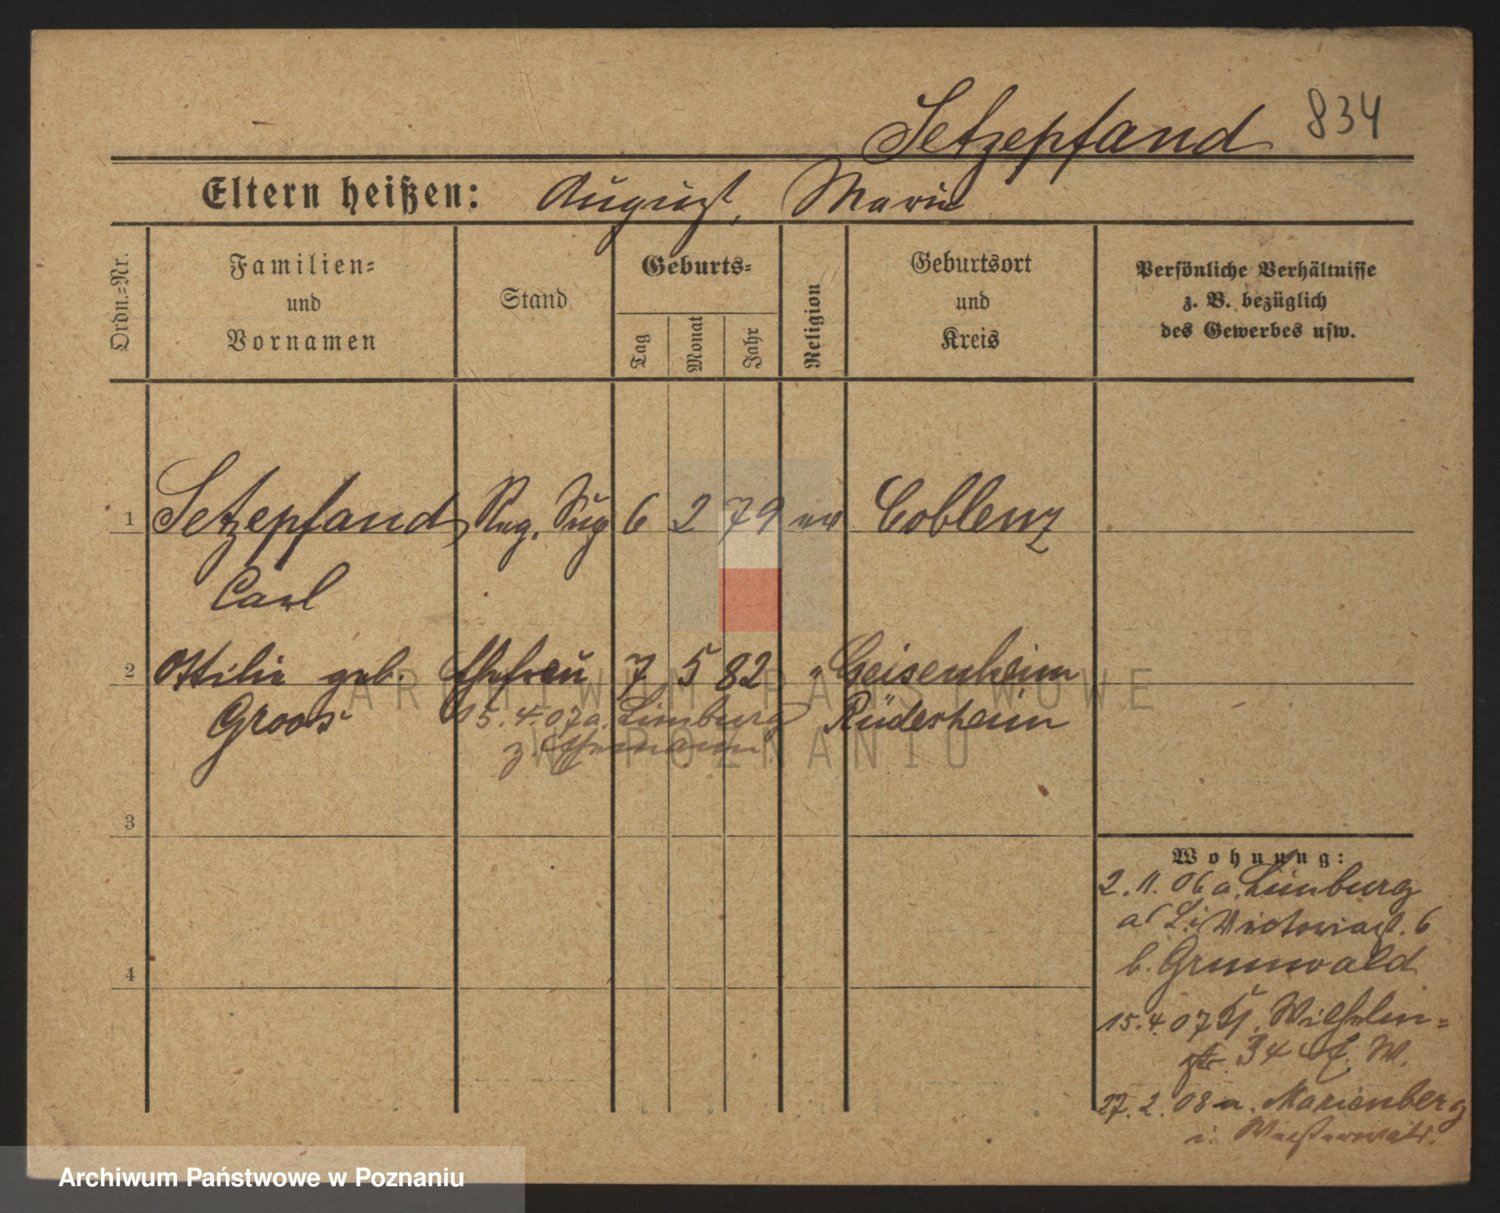 Setzepfand 834
Eltern heißen: August, Marie
Ordn.-Nr.
Familien-
und
Vornamen
Stand
Geburts-
Tag
Monat
Jahr
Religion
Geburtsort
und
Kreis
Persönliche Verhältnisse
z. B. bezüglich
des Gewerbes usw.
1 Setzepfand Reg. Sup 6 2 79 ev Coblenz
Carl
2 Ottilie geb. Ehefrau 7 5 82 " Geisenheim
Groos 15.4.07 a. Limburg Rüdesheim
z. Ehemann
3
4
Wohnung:
2.11.06 a. Limburg
a/L. Victoriast. 6
b. Grunwald
15.4.07 Wilhelm-
str. 34 E. W.
27.2.08 n. Marienberg
i. Westerwald.
ARCHIWUM PAŃSTWOWE
W POZNANIU
Archiwum Państwowe w Poznaniu